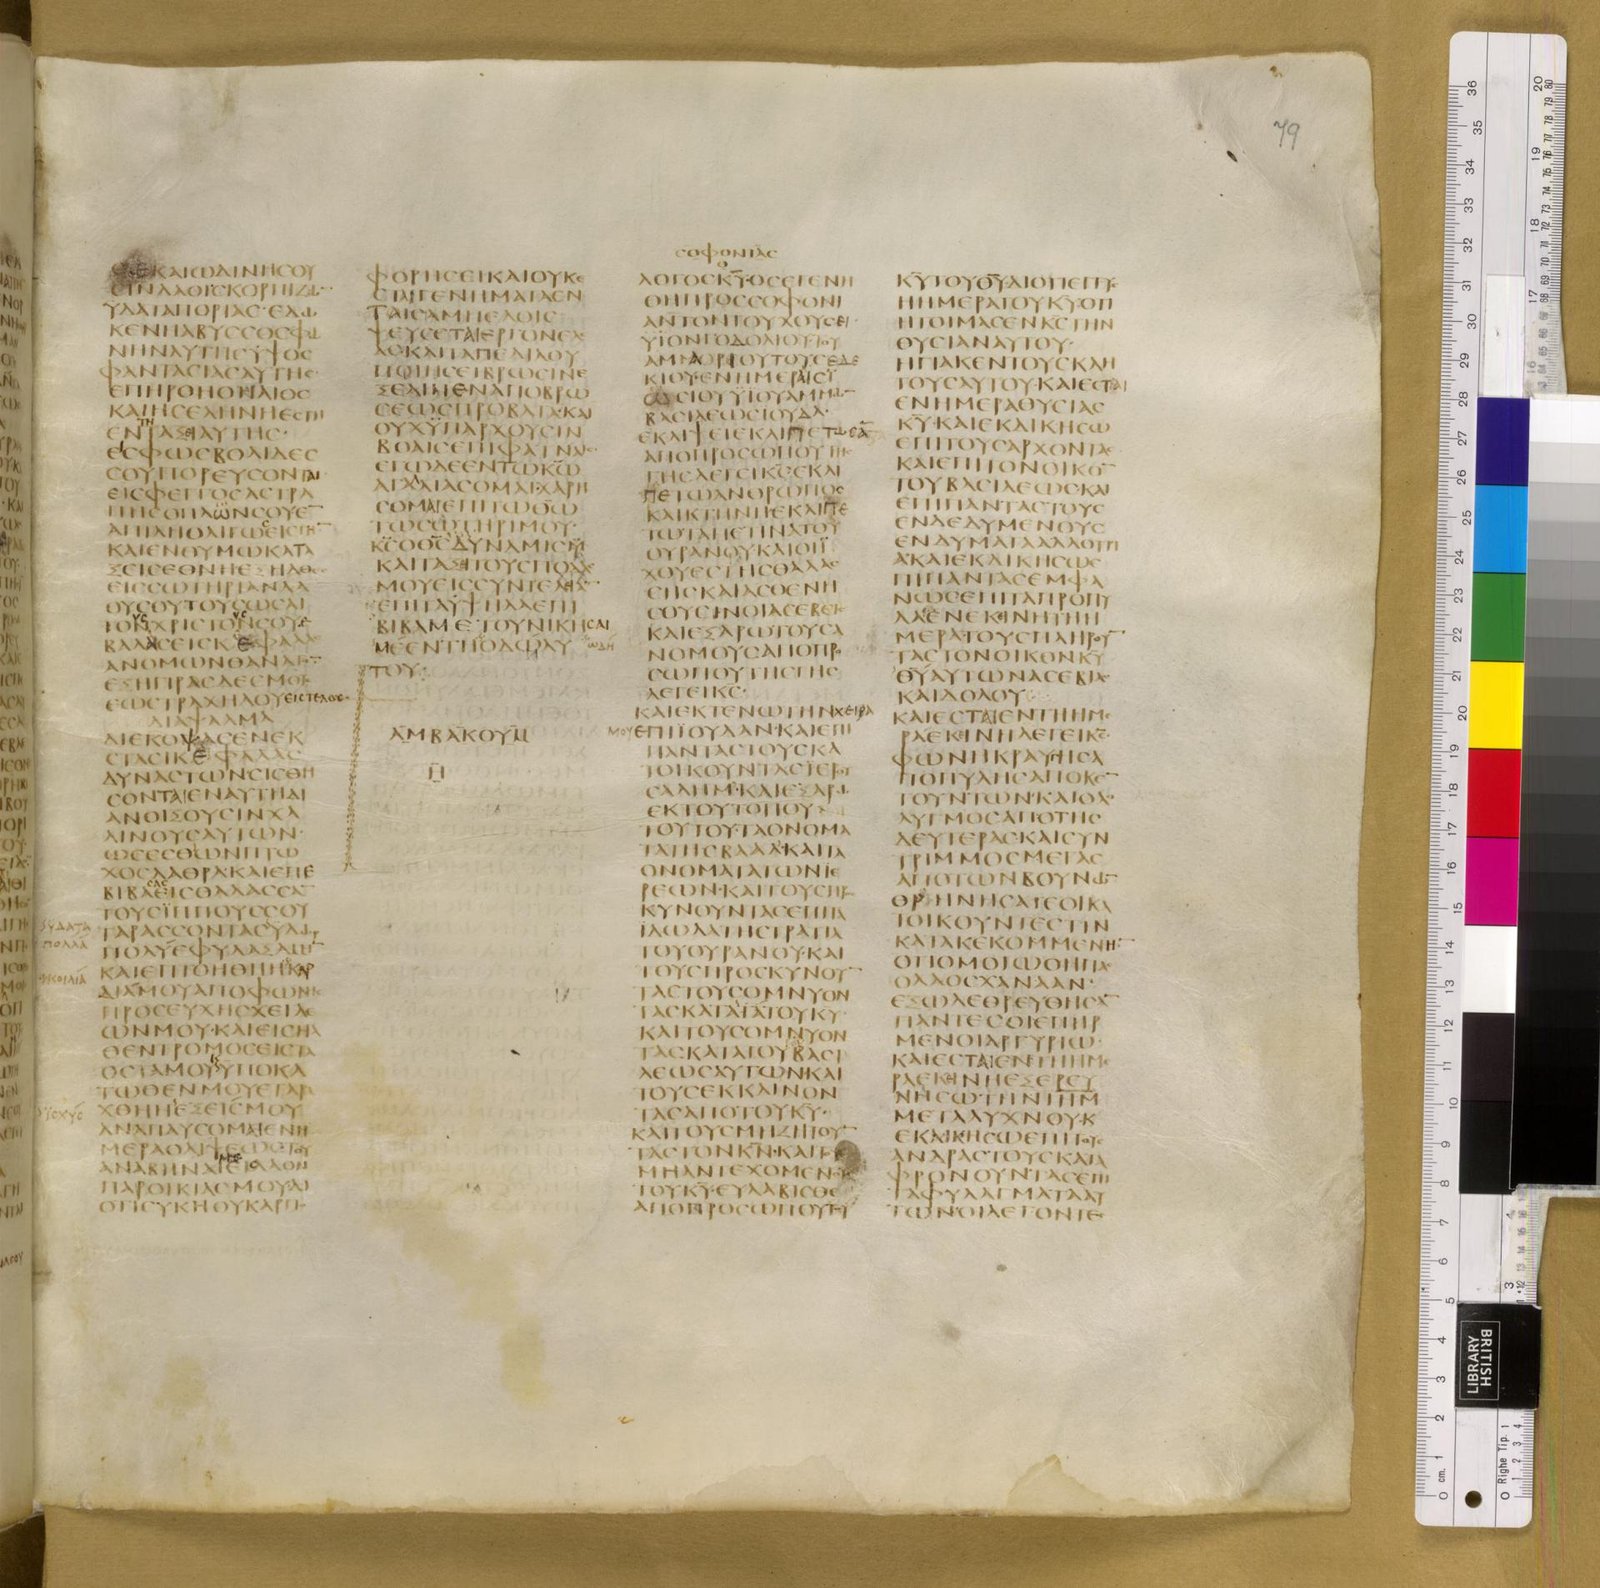 79
ΣΟΦΟΝΙΑΣ
ΣΕ ΚΑΙΩΔΙΝΗΣΟΥ
ΣΙΝΛΑΟΙΣΚΟΡΠΙΖΩ̅
ΥΔΑΤΑΠΟΡΙΑΣ·ΕΔΩ
ΚΕΝΗΑΒΥΣΣΟΣΦΩ
ΝΗΝΑΥΤΗΣΥΨΟΣ
ΦΑΝΤΑΣΙΑΣΑΥΤΗΣ·
ΕΠΗΡΘΗΟΗΛΙΟΣ
ΚΑΙΗΣΕΛΗΝΗΕΣΤΗ
ΕΝΤΗΤΑΞΙΑΥΤΗΣ·
ΕΙΣΦΩΣΒΟΛΙΔΕΣ
ΣΟΥΠΟΡΕΥΣΟΝΤΑΙ·
ΕΙΣΦΕΓΓΟΣΑΣΤΡΑ
ΠΗΣΟΠΛΩΝΣΟΥΕ̅
ΑΠΙΛΗΟΛΙΓΩΣΕΙΣΓΗ̅
ΚΑΙΕΝΘΥΜΩΚΑΤΑ
ΞΕΙΣΕΘΝΗΕΞΗΛΘΕΣ
ΕΙΣΣΩΤΗΡΙΑΝΛΑ
ΟΥΣΟΥΤΟΥΣΩΣΑΙ
ΤΟΥΣΧΡΙΣΤΟΥΣΣΟΥΕ
ΒΑΛΑΣΕΙΣΚΕΦΑΛΑΣ
ΑΝΟΜΩΝΘΑΝΑΤΟ̅
ΕΞΗΓΙΡΑΣΔΕΣΜΟΥΣ
ΕΩΣΤΡΑΧΗΛΟΥΕΙΣΤΕΛΟΣ·
ΔΙΑΨΑΛΜΑ
ΔΙΕΚΟΨΑΣΕΝΕΚ
ΣΤΑΣΙΚΕΦΑΛΑΣ
ΔΥΝΑΣΤΩΝΣΙΣΘΗ
ΣΟΝΤΑΙΕΝΑΥΤΗΔΙ
ΑΝΟΙΞΟΥΣΙΝΧΑ
ΛΙΝΟΥΣΑΥΤΩΝ·
ΩΣΕΣΘΩΝΠΤΩ
ΧΟΣΛΑΘΡΑΚΑΙΕΠΕ
ΒΙΒΑΣΑΣΕΙΣΘΑΛΑΣΣΑ̅
ΤΟΥΣΪΠΠΟΥΣΣΟΥ
ΤΑΡΑΣΣΟΝΤΑΣΥΔΩΡ
ΠΟΛΥΕΦΥΛΑΞΑΜΗ̅
ΚΑΙΕΠΤΟΗΘΗΗΚΑΡ
ΔΙΑΜΟΥΑΠΟΦΩΝΗΣ
ΠΡΟΣΕΥΧΗΣΧΕΙΛΕ
ΩΝΜΟΥ·ΚΑΙΕΙΣΗΛ
ΘΕΝΤΡΟΜΟΣΕΙΣΤΑ
ΟΣΤΑΜΟΥΫΠΟΚΑ
ΤΩΘΕΝΜΟΥΕΤΑΡΑ
ΧΘΗΗΕΞΕΙΣΜΟΥ
ΑΝΑΠΑΥΣΟΜΑΙΕΝΗ
ΜΕΡΑΘΛΙΨΕΩΣΤΟΥ
ΑΝΑΒΗΝΑΙΕΙΣΛΑΟΝ
ΠΑΡΟΙΚΙΑΣΜΟΥΔΙ
ΟΤΙΣΥΚΗΟΥΚΑΡΠΟ
ΥΔΑΤΑ
ΠΟΛΛΑ
ΗΚΟΙΛΙΑ
ΪΣΧΥΣ
ΦΟΡΗΣΕΙΚΑΙΟΥΚΕ
ΣΤΑΙΓΕΝΗΜΑΤΑΕΝ
ΤΑΙΣΑΜΠΕΛΟΙΣ·
ΨΕΥΣΕΤΑΙΕΡΓΟΝΕΛ
ΑΙΑΣΚΑΙΤΑΠΕΔΙΑΟΥ
ΠΟΙΗΣΕΙΒΡΩΣΙΝΕ
ΞΕΛΙΠΕΝΑΠΟΒΡΩ
ΣΕΩΣΠΡΟΒΑΤΑ·ΚΑΙ
ΟΥΧΫΠΑΡΧΟΥΣΙΝ
ΒΟΑΙΣΕΠΙΦΑΤΝΑΙΣ·
ΕΓΩΔΕΕΝΤΩΚ̅Ω̅
ΑΓΑΛΛΙΑΣΟΜΑΙ·ΧΑΡΗ
ΣΟΜΑΙΕΠΙΤΩΘ̅Ω̅
ΤΩΣΩΤΗΡΙΜΟΥ·
Κ̅Σ̅ΟΘ̅Σ̅ΔΥΝΑΜΙΣΜΟΥ
ΚΑΙΤΑΞΕΙΤΟΥΣΠΟΔΑΣ
ΜΟΥΕΙΣΣΥΝΤΕΛΕΙΑ̅
ΕΠΙΤΑΥΨΗΛΑΕΠΙ
ΒΙΒΑΜΕ·ΤΟΥΝΙΚΗΣΑΙ
ΜΕΕΝΤΗΩΔΗΑΥ
ΤΟΥ·
ΑΜΒΑΚΟΥΜ
Η
ΛΟΓΟΣΚ̅Υ̅·ΟΣΕΓΕΝΗ
ΘΗΠΡΟΣΣΟΦΟΝΙ
ΑΝΤΟΝΤΟΥΧΟΥΣΕΙ·
ΥΪΟΝΓΟΔΟΛΙΟΥ·ΤΟΥ
ΑΜΑΡΙΟΥΤΟΥΕΖΕ
ΚΙΟΥ·ΕΝΗΜΕΡΑΙΣΪ
ΩΣΙΟΥΥΪΟΥΑΜΜΩ̅
ΒΑΣΙΛΕΩΣΙΟΥΔΑ·
ΕΚΛΙΨΕΙΕΚΛΙΠΕΤΩΣΑ̅
ΑΠΟΠΡΟΣΩΠΟΥΤΗΣ
ΓΗΣΛΕΓΕΙΚ̅Σ̅ΕΚΛΙ
ΠΕΤΩΑΝΘΡΩΠΟΣ
ΚΑΙΚΤΗΝΗΕΚΛΙΠΕ
ΤΩΤΑΠΕΤΙΝΑΤΟΥ
ΟΥΡΑΝΟΥΚΑΙΟΙΪ
ΧΘΥΕΣΤΗΣΘΑΛΑΣ
ΣΗΣΚΑΙΑΣΘΕΝΗ
ΣΟΥΣΙΝΟΙΑΣΕΒΕΙΣ
ΚΑΙΕΞΑΡΩΤΟΥΣΑ
ΝΟΜΟΥΣΑΠΟΠΡΟ
ΣΩΠΟΥΤΗΣΓΗΣ
ΛΕΓΕΙΚ̅Σ̅·
ΚΑΙΕΚΤΕΝΩΤΗΝΧΕΙΡΑ
ΜΟΥΕΠΙΪΟΥΔΑΝ·ΚΑΙΕΠΙ
ΠΑΝΤΑΣΤΟΥΣΚΑ
ΤΟΙΚΟΥΝΤΑΣΪΕΡΟΥ
ΣΑΛΗΜ·ΚΑΙΕΞΑΡΩ
ΕΚΤΟΥΤΟΠΟΥ
ΤΟΥΤΟΥ·ΤΑΟΝΟΜΑ
ΤΑΤΗΣΒΑΑΛ·ΚΑΙΤΑ
ΟΝΟΜΑΤΑΤΩΝΙΕ
ΡΕΩΝ·ΚΑΙΤΟΥΣΠΡΟΣ
ΚΥΝΟΥΝΤΑΣΕΠΙΤΑ
ΔΩΜΑΤΑΤΗΣΤΡΑΤΙΑ
ΤΟΥΟΥΡΑΝΟΥ·ΚΑΙ
ΤΟΥΣΠΡΟΣΚΥΝΟΥ̅
ΤΑΣΤΟΥΣΟΜΝΥΟΝ
ΤΑΣΚΑΤΑΤΟΥΚ̅Υ̅·
ΚΑΙΤΟΥΣΟΜΝΥΟΝ
ΤΑΣΚΑΤΑΤΟΥΒΑΣΙ
ΛΕΩΣΑΥΤΩΝ·ΚΑΙ
ΤΟΥΣΕΚΚΛΙΝΟΝ
ΤΑΣΑΠΟΤΟΥΚ̅Υ̅·
ΚΑΙΤΟΥΣΜΗΖΗΤΟΥ̅
ΤΑΣΤΟΝΚ̅Ν̅·ΚΑΙΤΟΥΣ
ΜΗΑΝΤΕΧΟΜΕΝΟΥΣ
ΤΟΥΚ̅Υ̅·ΕΥΛΑΒΙΣΘΕ
ΑΠΟΠΡΟΣΩΠΟΥΚ̅Υ̅
Κ̅Υ̅ΤΟΥΘ̅Υ̅ΔΙΟΤΙΕΓΓΥΣ
ΗΗΜΕΡΑΤΟΥΚ̅Υ̅ΟΤΙ
ΗΤΟΙΜΑΣΕΝΚ̅Σ̅ΤΗΝ
ΘΥΣΙΑΝΑΥΤΟΥ·
ΗΓΙΑΚΕΝΤΟΥΣΚΛΗ
ΤΟΥΣΑΥΤΟΥ·ΚΑΙΕΣΤΑΙ
ΕΝΗΜΕΡΑΘΥΣΙΑΣ
Κ̅Υ̅·ΚΑΙΕΚΔΙΚΗΣΩ
ΕΠΙΤΟΥΣΑΡΧΟΝΤΑΣ
ΚΑΙΕΠΙΤΟΝΟΙΚΟ̅
ΤΟΥΒΑΣΙΛΕΩΣΚΑΙ
ΕΠΙΠΑΝΤΑΣΤΟΥΣ
ΕΝΔΕΔΥΜΕΝΟΥΣ
ΕΝΔΥΜΑΤΑΑΛΛΟΤΡΙ
Α·ΚΑΙΕΚΔΙΚΗΣΩΕ
ΠΙΠΑΝΤΑΣΕΜΦΑ
ΝΩΣΕΠΙΤΑΠΡΟΠΥ
ΛΑ·ΕΝΕΚΙΝΗΤΗΗ
ΜΕΡΑΤΟΥΣΠΛΗΡΟΥ̅
ΤΑΣΤΟΝΟΙΚΟΝΚ̅Υ̅
Θ̅Υ̅ΑΥΤΩΝΑΣΕΒΙΑΣ
ΚΑΙΔΟΛΟΥ·
ΚΑΙΕΣΤΑΙΕΝΤΗΗΜΕ
ΡΑΕΚΙΝΗΛΕΓΕΙΚ̅Σ̅·
ΦΩΝΗΚΡΑΥΓΗΣΑ
ΠΟΠΥΛΗΣΑΠΟΚΕ̅
ΤΟΥΝΤΩΝ·ΚΑΙΟΛΟ
ΛΥΓΜΟΣΑΠΟΤΗΣ
ΔΕΥΤΕΡΑΣ·ΚΑΙΣΥΝ
ΤΡΙΜΜΟΣΜΕΓΑΣ
ΑΠΟΤΩΝΒΟΥΝΩ̅
ΘΡΗΝΗΣΑΤΕΟΙΚΑ
ΤΟΙΚΟΥΝΤΕΣΤΗΝ
ΚΑΤΑΚΕΚΟΜΜΕΝΗ̅
ΟΤΙΟΜΟΙΩΘΗΠΑΣ
ΟΛΑΟΣΧΑΝΑΑΝ·
ΕΞΩΛΕΘΡΕΥΘΗΣΑ̅
ΠΑΝΤΕΣΟΙΕΠΗΡ
ΜΕΝΟΙΑΡΓΥΡΙΩ·
ΚΑΙΕΣΤΑΙΕΝΤΗΗΜΕ
ΡΑΕΚΙΝΗΕΞΕΡΕΥ
ΝΗΣΩΤΗΝΙΗΜ
ΜΕΤΑΛΥΧΝΟΥ·Κ
ΕΚΔΙΚΗΣΩΕΠΙΤΟΥΣ
ΑΝΔΡΑΣΤΟΥΣΚΑΤΑ
ΦΡΟΝΟΥΝΤΑΣΕΠΙ
ΤΑΦΥΛΑΓΜΑΤΑΑΥ
ΤΩΝ·ΟΙΛΕΓΟΝΤΕΣ